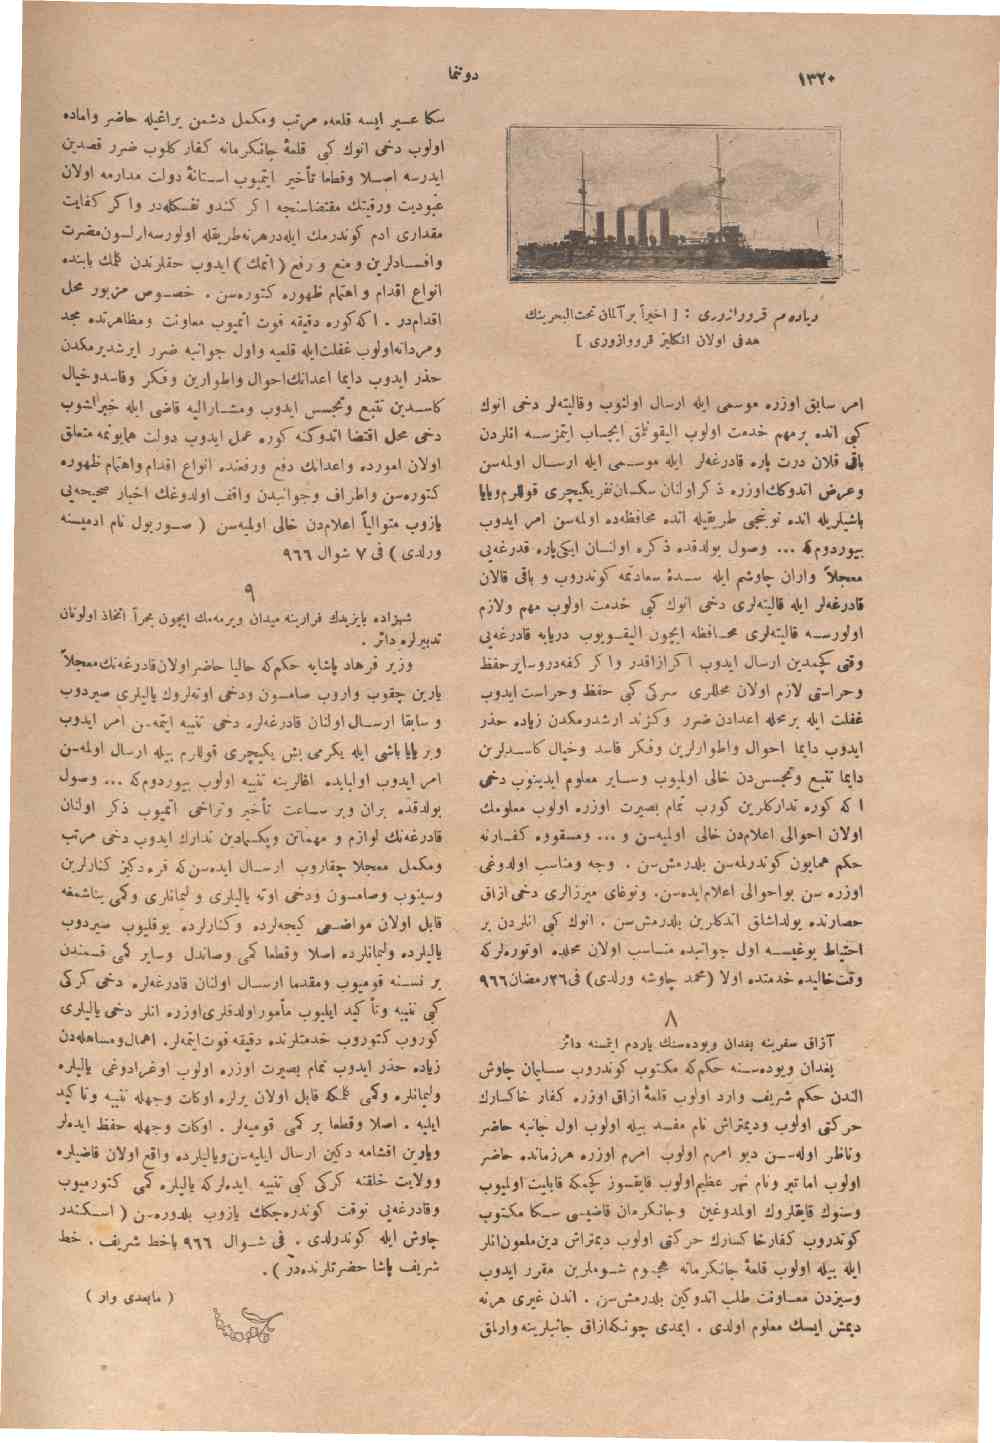 ١٣٢٠
دوننما
دیاده م قروازوری : [ اخیراً بر آلمان تحت‌البحرینك
هدفی اولان انكلیز قروازوری ]
امر سابق اوزره موسمی ایله ارسال اولنوب وقالیته‌لر دخی انوك
كبی انده برمهم خدمت اولوب الیقونلق ایجاب ایتمزسه انلردن
باقی قلان درت پاره قادرغه‌لر ایله موسمی ایله ارسال اولمه‌سن
وعرض اندوكك اوزره ذكر اولنان سكسان نفر یكیچری قوللرم ویایا
باشیلریله انده نوبتجی طریقیله انده محافظه‌ده اولمه‌سن امر ایدوب
بیوردوم كه ... وصول بولدقده ذكره اولنسان ایكی پاره قدرغه‌یی
معجلاً واران چاوشم ایله سدهٔ سعادتمه كوندروب و باقی قالان
قادرغه‌لر ایله قالیته‌لری دخی انوك كبی خدمت اولوب مهم ولازم
اولورسه قالیته‌لری محافظه ایچون الیقویوب دریایه قادرغه‌یی
وقتی كچمدین ارسال ایدوب اكر ازاقدر واكر كفه‌در وسایر حفظ
وحراستی لازم اولان محللری سركی كبی حفظ وحراست ایدوب
غفلت ایله برمحله اعدادن ضرر وكزند ارشدرمكدن زیاده حذر
ایدوب دایما احوال واطوارلرین وفكر فاسد وخیال كاسدلرین
دایما تتبع وتجسس‌دن خالی اولمیوب وسایر معلوم ایدینوب دخی
اكه كوره تداركلرین كورب تمام بصیرت اوزره اولوب معلومك
اولان احوالی اعلام‌دن خالی اولمیه‌سن و ... ومسقووه كفارنه
حكم همایون كوندرلمه‌سن بلدرمش‌سن . وجه ومناسب اولدوغی
اوزره سن بواحوالی اعلام ایده‌سن. ونوغای میرزالری دخی ازاق
حصارنده یولداشلق اندكلرین بلدرمش‌سن . انوك كبی انلردن بر
احتیاط یوغیسه اول جوانبده مناسب اولان محلده اوتوره‌لركه
وقت حالیده خدمتده اولا (محمد چاوشه ورلدی) فی ٢٦ رمضان ٩٦٦
٨
آزاق سفرینه بغدان ویوده‌سنك یاردم ایتمسنه دائر
بغدان ویوده‌سنه حكم كه مكتوب كوندروب سلیمان چاوش
الندن حكم شریف وارد اولوب قلعهٔ ازاق اوزره كفار خاكسارك
حركتی اولوب ودیمتراش نام مفسد بیله اولوب اول جانبه حاضر
وناظر اوله‌سن دیو امرم اولوب امرم اوزره هرزمانده حاضر
اولوب اما تیر ونام نهر عظیم اولوب قایقسوز كچمكه قابلیت اولمیوب
وسنوك قایقلروك اولمدوغین وجانكرمان قاضیسی سكا مكتوب
كوندروب كفار خاكسارك حركتی اولوب دیمتراش دین ملعون انلر
ایله بیله اولوب قلعهٔ جانكرمانه هجوم شوملرین مقرر ایدوب
وسیزدن معاونت طلب اندوكین بلدرمش‌سن . اندن غیری هرنه
دیمش ایسك معلوم اولدی . ایمدی چونكه ازاق جانبلرینه وارلمق
سكا عسیر ایسه قلعه‌ مرتب ومكمل دشمن یراغیله حاضر واماده
اولوب دخی انوك كبی قلعهٔ جانكرمانه كفار كلوب ضرر قصدین
ایدرسه اصلا وقطعا تأخیر ایتمیوب آستانهٔ دولت مدارمه اولان
عبودیت ورقیتك مقتضاسنجه اكر كندو نفسكله‌در واكر كفایت
مقداری ادم كوندرمك ایله‌در هرنه‌طریقله اولورسه‌اولسون مضرت
وافسادلرین ومنع و رفع ( اتمك ) ایدوب حقلرندن كلمك بابنده
انواع اقدام واهتمام ظهوره كتوره‌سن . خصوص مزبور محل
اقدام‌در . اكه‌كوره دقیقه فوت اتمیوب معاونت ومظاهرتده مجد
ومردانه‌اولوب غفلت‌ایله قلعیه واول جوانبه ضرر ایرشدیرمكدن
حذر ایدوب دایما اعدانك‌احوال واطوارین وفكر وفاسدوخیال
كاسدین تتبع وتجسس ایدوب ومشارالیه قاضی ایله خبرلشوب
دخی محل اقتضا اتدوكنه كوره عمل ایدوب دولت همایونمه متعلق
اولان امورده واعدانك دفع ورفعنده انواع اقدام واهتمام ظهوره
كتوره‌سن واطراف وجوانبدن واقف اولدوغك اخبار صحیحه‌یی
یازوب متوالیاً اعلام‌دن خالی اولمیه‌سن ( صوریول نام ادمیسنه
ورلدی ) فی ٧ شوال ٩٦٦
٩
شهزاده بایزیدك فرارینه میدان ویرمه‌مك ایچون مجرأ اتخاذ اولونان
تدبیرلره دائر .
وزیر فرهاد پاشایه حكم كه حالیا حاضر اولان قادرغه‌نك‌معجلاً
یارین چقوب واروب صامسون ودخی اوته‌لروك یالیلری سیردوب
و سابقا ارسال اولنان قادرغه‌لره دخی تنبیه ایتمه‌سن امر ایدوب
وبر یایا باشی ایله یكرمی بش یكیچری قوللرم بیله ارسال اولمه‌سن
امر ایدوب اولبابده اغالرینه تنبیه اولوب بیوردوم كه ... وصول
بولدقده بران وبر ساعت تأخیر وتراخی اتمیوب ذكر اولنان
قادرغه‌نك لوازم و مهماتن ویكیلدین تدارك ایدوب دخی مرتب
ومكمل معجلا چقاروب ارسال ایده‌سن كه قره دكیز كنارلرین
وسینوب وصامسون ودخی اوته یالیلری و لیمانلری وكمی یناشمغه
قابل اولان مواضعی كیجه‌لرده وكنارلرده یوقلیوب سیردوب
یالیلرده ولیمانلرده اصلا وقطعا كمی وصاندل وسایر كمی قسمندن
بر نسنه قومیوب ومقدما ارسال اولنان قادرغه‌لره دخی كركی
كبی تنبیه وتأكید ایلیوب مأمور اولدقلری‌اوزره انلر دخی یالیلری
كوروب كتوروب خدمتلرنده دقیقه فوت ایتمه‌لر. اهمال‌ومساهله‌دن
زیاده حذر ایدوب تمام بصیرت اوزره اولوب اوغرادوغی یالیلره
ولیمانلره وكمی كلمكه قابل اولان یرلره اوكات وجهله تنبیه وتأكید
ایلیه . اصلا وقطعا بر كمی قومیه‌لر . اوكات وجهله حفظ ایده‌لر
ویارین اقشامه دكین ارسال ایلیه‌سن‌ویالیلرده واقع اولان قاضیلره
وولایت خلقنه كركی كبی تنبیه ایده‌لركه یالیلره كمی كتورمیوب
وقادرغه‌یی نوقت كوندره‌جكك یازوب بلدوره‌سن ( اسكندر
چاوش ایله كوندرلدی . فی شوال ٩٦٦ باخط شریف . خط
شریف پاشا حضرتلرنده‌در ) .
( مابعدی وار )